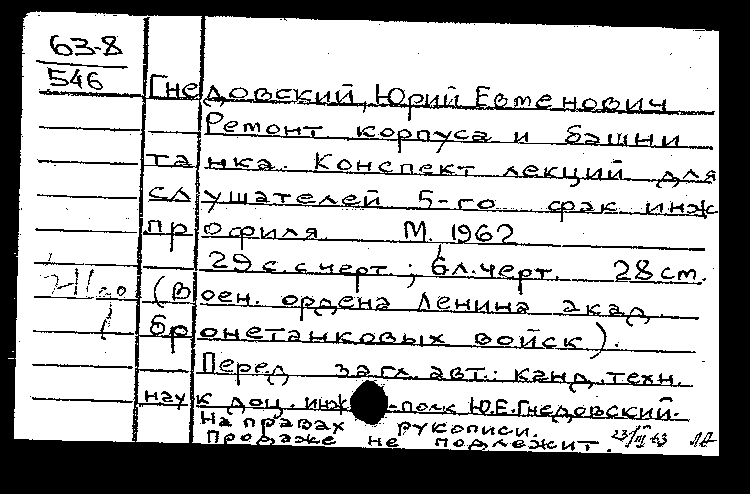 63-8
546
Гнедовский, Юрий Евменович
Ремонт корпуса и башни
танка. Конспект лекций для
слушателей 5-го фак инж
профиля М. 1962
29 с. с черт.; 6 л. черт. 28 см.
(Воен. ордена Ленина акад.
бронетанковых войск).
Перед загл. авт.: канд. техн.
наук доц. инж -полк Ю.Е. Гнедовский.
На правах рукописи.
Продаже не подлежит. 23/III 63